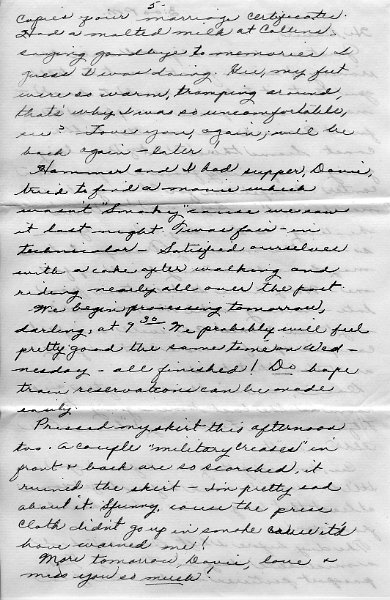 5-
Copies your marriage certificate.
Had a malted milk at Collins'
saying goodbye to memories I
guess I was doing. Gee, my feet
were so warm, tramping around,
that's why I was so uncomfortable,
see? Love you, again, will be
back again - later!
Hammer and I had supper, Davie,
tried to find a movie which
wasn't "Smoky" cause we saw
it last night. Twas fair - in
technicolor - Satisfied ourselves
with a coke after walking and
riding nearly all over the post.
We begin processing tomorrow,
darling, at 7 30. We probably will feel
pretty good the same time on Wed-
nesday - all finished! Do hope
train reservations can be made
early.
Pressed my skirt this afternoon
too. A couple "military creases" in
front & back are so scorched, it
ruined the skirt - I'm pretty sad
about it. Funny, cause the press
cloth didn't go up in smoke cause it'd
have warned me!
More tomorrow, Davie, love &
miss you so much!